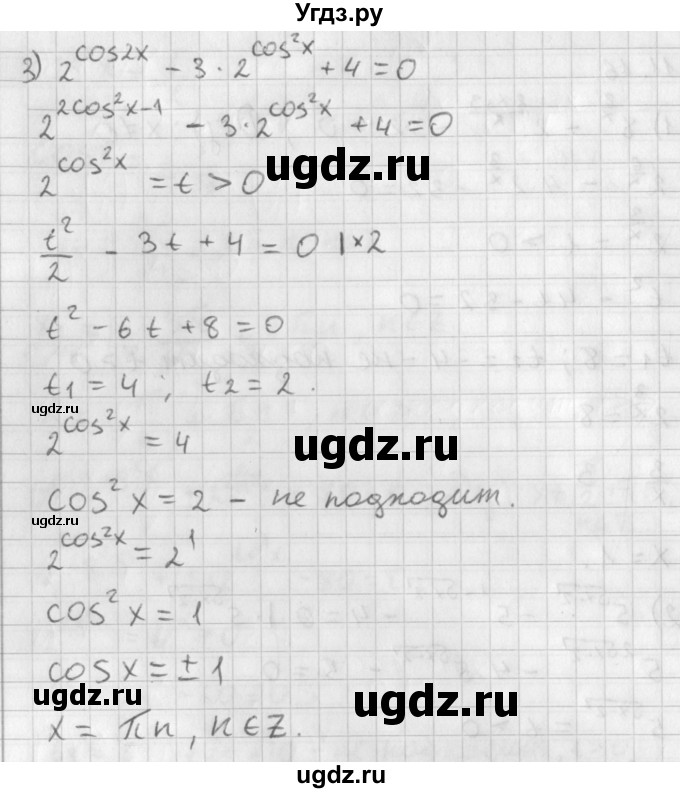 Угдз.ру
3) 2^{cos2x} - 3 · 2^{cos²x} + 4 = 0
2^{2cos²x-1} - 3 · 2^{cos²x} + 4 = 0
ugdz.ru
2^{cos²x} = t > 0
t²/2 - 3t + 4 = 0 | × 2
t² - 6t + 8 = 0
t₁ = 4 ; t₂ = 2.
ugdz.ru
2^{cos²x} = 4
ugdz.ru
cos²x = 2 - не подходит.
ugdz.ru
2^{cos²x} = 2¹
cos²x = 1
cosx = ± 1
ugdz.ru
ugdz.ru
x = πn, n ∈ Z.
ugdz.ru